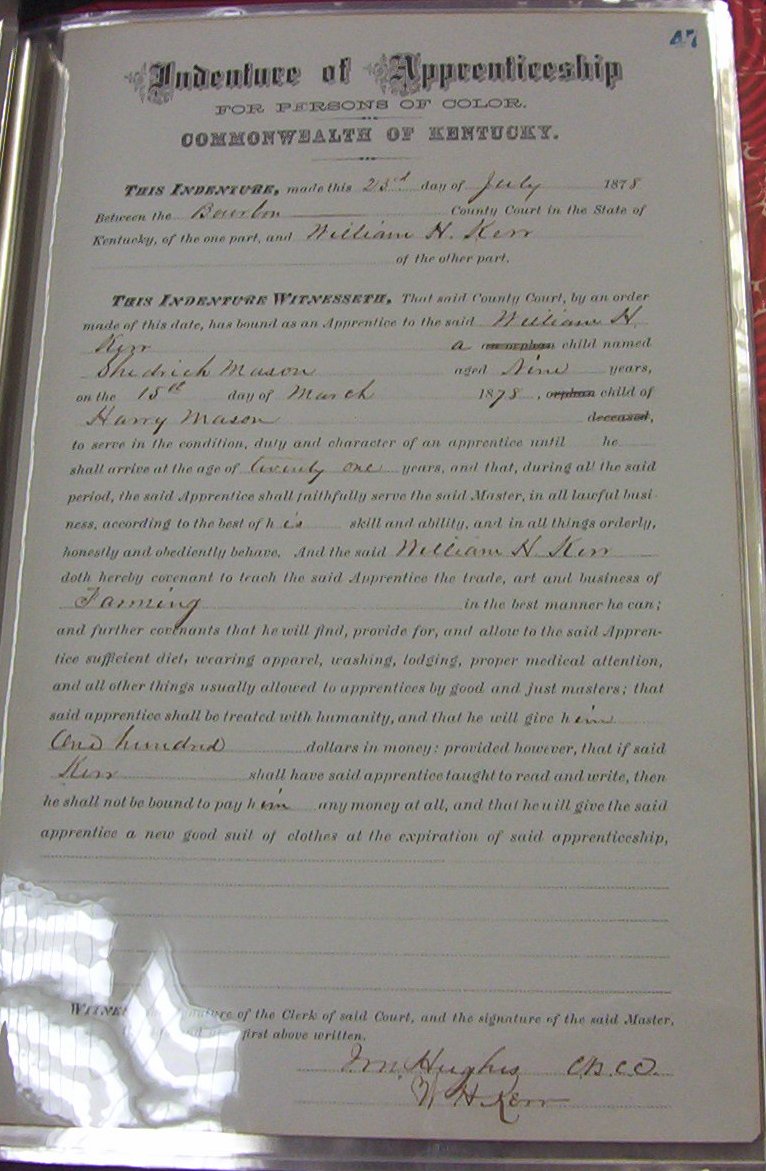 47
Indenture of Apprenticeship
FOR PERSONS OF COLOR.
COMMONWEALTH OF KENTUCKY.
THIS INDENTURE, made this 23rd day of July 1878
Between the Bourbon County Court in the State of
Kentucky, of the one part, and William H. Kerr
of the other part.
THIS INDENTURE WITNESSETH, That said County Court, by an order
made of this date, has bound as an Apprentice to the said William H.
Kerr a an orphan child named
Shedrick Mason aged Nine years,
on the 15th day of March 1878, orphan child of
Harry Mason deceased,
to serve in the condition, duty and character of an apprentice until he
shall arrive at the age of twenty one years, and that, during all the said
period, the said Apprentice shall faithfully serve the said Master, in all lawful busi-
ness, according to the best of his skill and ability, and in all things orderly,
honestly and obediently behave. And the said William H. Kerr
doth hereby covenant to teach the said Apprentice the trade, art and business of
Farming in the best manner he can;
and further covenants that he will find, provide for, and allow to the said Appren-
tice sufficient diet, wearing apparel, washing, lodging, proper medical attention,
and all other things usually allowed to apprentices by good and just masters; that
said apprentice shall be treated with humanity, and that he will give him
One hundred dollars in money: provided however, that if said
Kerr shall have said apprentice taught to read and write, then
he shall not be bound to pay him any money at all, and that he will give the said
apprentice a new good suit of clothes at the expiration of said apprenticeship,
of the Clerk of said Court, and the signature of the said Master,
first above written.
Hughes C.B.C.C.
W H Kerr